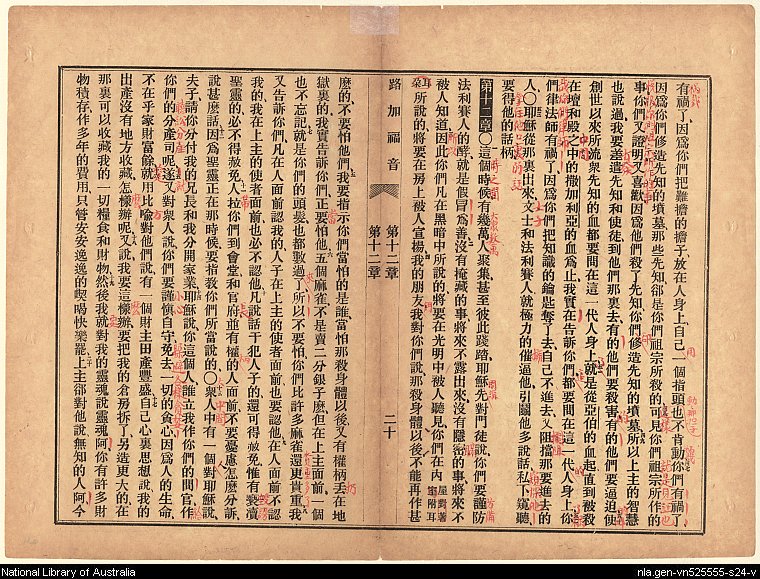 有禍了因爲你們把難擔的擔子放在人身上自己一個指頭也不肯動你們有禍了
因爲你們修造先知的墳墓那些先知卻是你們祖宗所殺的可見你們祖宗所作的
事你們又證明又喜歡因爲他們殺了先知你們修造先知的墳墓所以上主的智慧
也說過我要差遣先知和使徒到他們那裏去有的他們要殺害有的他們要逼迫使
創世以來所流衆先知的血都要問在這一代人身上就是從亞伯的血起直到被殺
在壇和殿之中的撒加利亞的血爲止我實在告訴你們都要問在這一代人身上你
們律法師有禍了因爲你們把知識的鑰匙奪了去自己不進去又阻擋那要進去的
人〇耶穌從那裏出來文士和法利賽人就極力的催逼他引關他多說話私下窺聽
要得他的話柄
第十二章〇這個時候有幾萬人聚集甚至彼此踐踏耶穌先對門徒說你們要謹防
法利賽人的酵就是假冒爲善沒有掩藏的事將來不露出來沒有隱密的事將來不
被人知道因此你們凡在黑暗中所說的將要在光明中被人聽見你們在內屋附耳
所說的將要在房上被人宣揚我的朋友我對你們說那殺身體以後不能再作甚
路加福音 第十二章 第十二章 二十
麼的不要怕他們我要指示你們當怕的是誰當怕那殺身體以後又有權柄丟在地
獄裏的我實告訴你們正要怕他五個麻雀不是賣二分銀子麼但在上主面前一個
也不忘記就是你們的頭髮也都數過了所以不要怕你們比許多麻雀還更貴重我
又告訴你們凡在人面前認我的人子在上主的使者面前也要認他在人面前不認
我的我在上主的使者面前也必不認他凡說話干犯人子的還可得赦免惟有褻瀆
聖靈的必不得赦免人拉你們到會堂和官府並有權的人面前不要憂慮怎麼分訴
說甚麼話因爲聖靈正在那時候要指教你們所當說的〇衆人中有一個對耶穌說
夫子請你分付我的兄長和我分開家業耶穌說你這個人誰立我作你們的間官作
你們的分產司呢遂又對衆人說你們要謹愼自守免去一切的貪心因爲人的生命
不在乎家財富餘就用比喻對他們說有一個財主田產豐盛自己心裏思想說我的
出產沒有地方收藏怎樣辦呢又說我要這樣辦要把我的倉房拆了另造更大的在
那裏可以收藏我的一切糧食和財物然後我就對我的靈魂說靈魂阿你有許多財
物積存作多年的費用只管安安逸逸的喫喝快樂罷上主卻對他說無知的人阿今
National Library of Australia
nla.gen-vn525555-s24-v